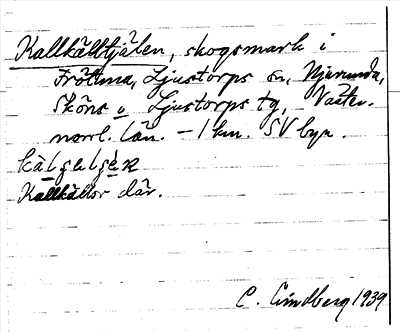 Kallkälltjälen, skogsmark i
Frötuna, Ljustorps sn, Njurunda,
Sköns o. Ljustorps tg, Väster-
norrl. län. – 1 km. SV byn.
Kallkällor där.
C. Lindberg 1939